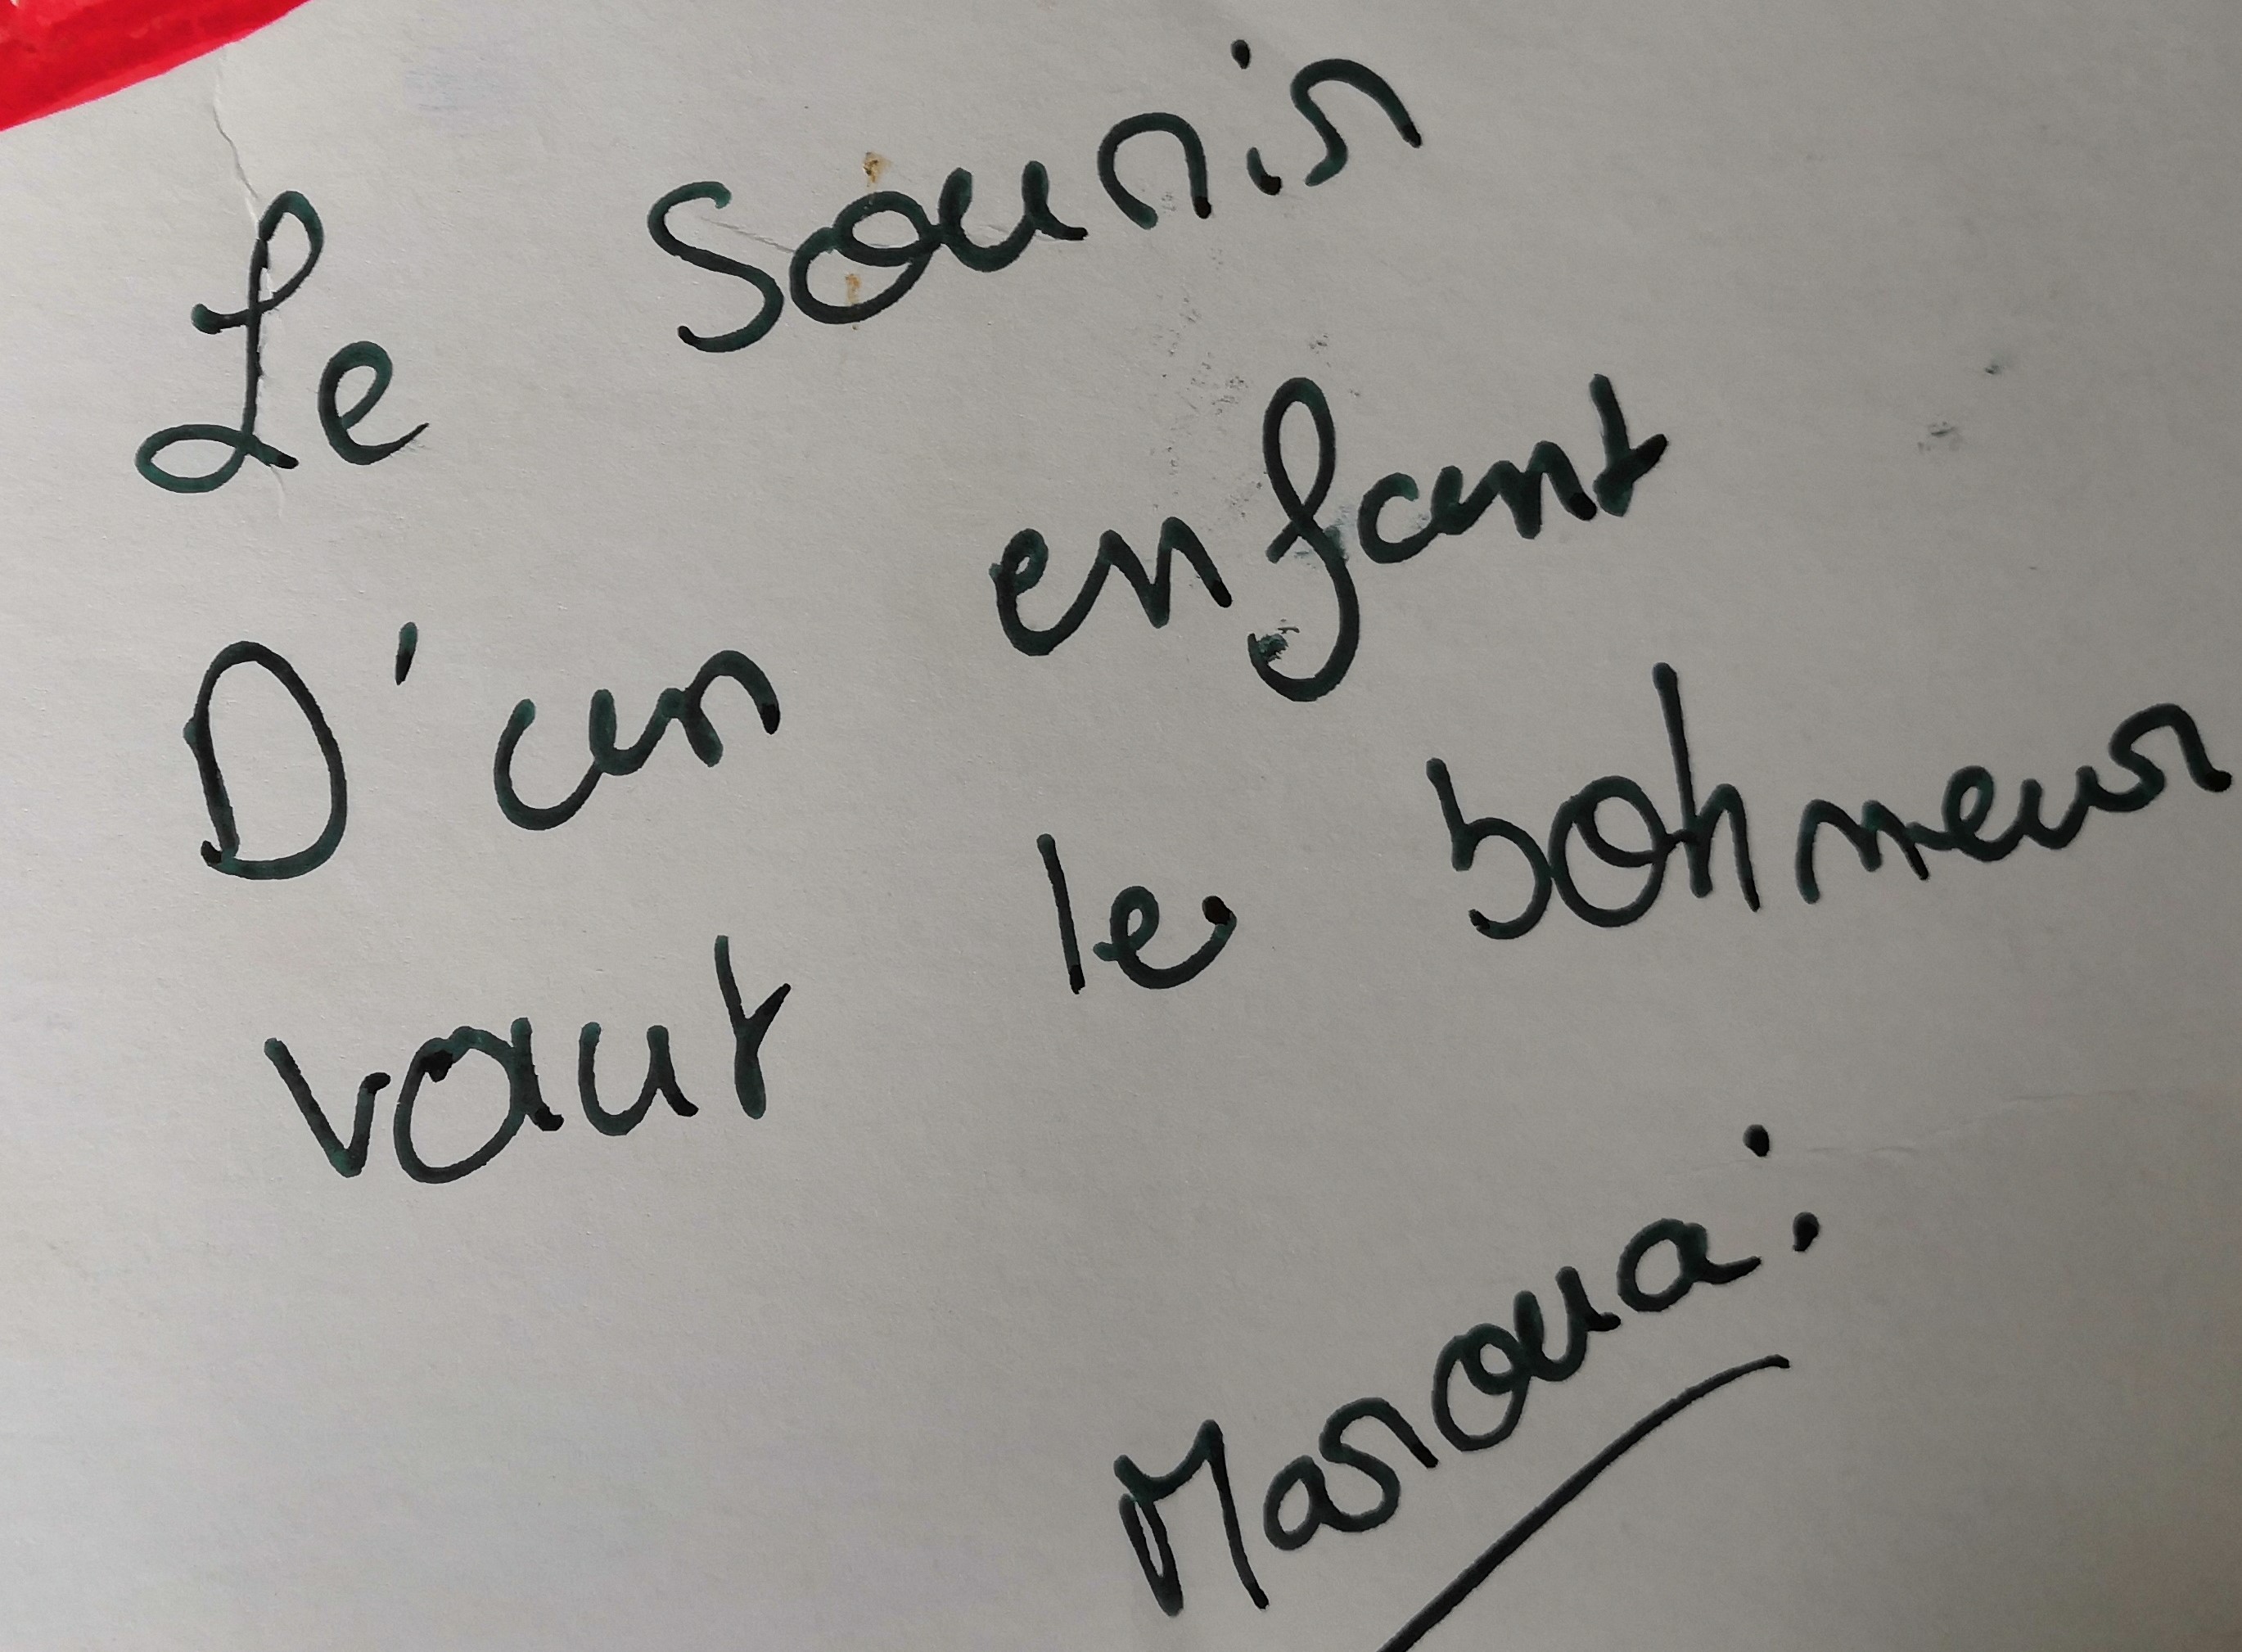 Le sourir
D'un enfant
vaut le bohneur
Maroua: